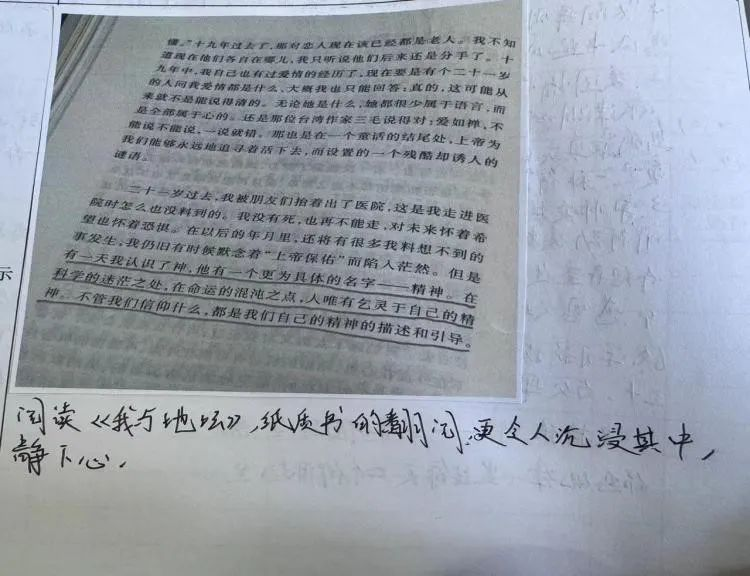 懂。”十九年过去了，那对恋人现在该已经都是老人。我不知
道现在他们各自在哪儿，我只听说他们后来还是分手了。十
九年中，我自己也有过爱情的经历了，现在要是有个二十一岁
的人问我爱情都是什么，大概我也只能回答：真的，这可能从
来就不是能说得清的。无论她是什么，她都很少属于语言，而
是全部属于心的。还是那位台湾作家三毛说得对：爱如禅，不
能说不能说，一说就错。那也是在一个童话的结尾处，上帝为
我们能够永远地追寻着活下去，而设置的一个残酷却诱人的
谜语。
二十一岁过去，我被朋友们抬着出了医院，这是我走进医
院时怎么也没料到的。我没有死，也再不能走，对未来怀着希
望也怀着恐惧。在以后的年月里，还将有很多我料想不到的
事发生，我仍旧有时候默念着“上帝保佑”而陷入茫然。但是
有一天我认识了神，他有一个更为具体的名字——精神。在
科学的迷茫之处，在命运的混沌之点，人唯有乞灵于自己的精
神。不管我们信仰什么，都是我们自己的精神的描述和引导。
示
阅读《我与地坛》，纸质书的翻阅，更令人沉浸其中，
静下心，